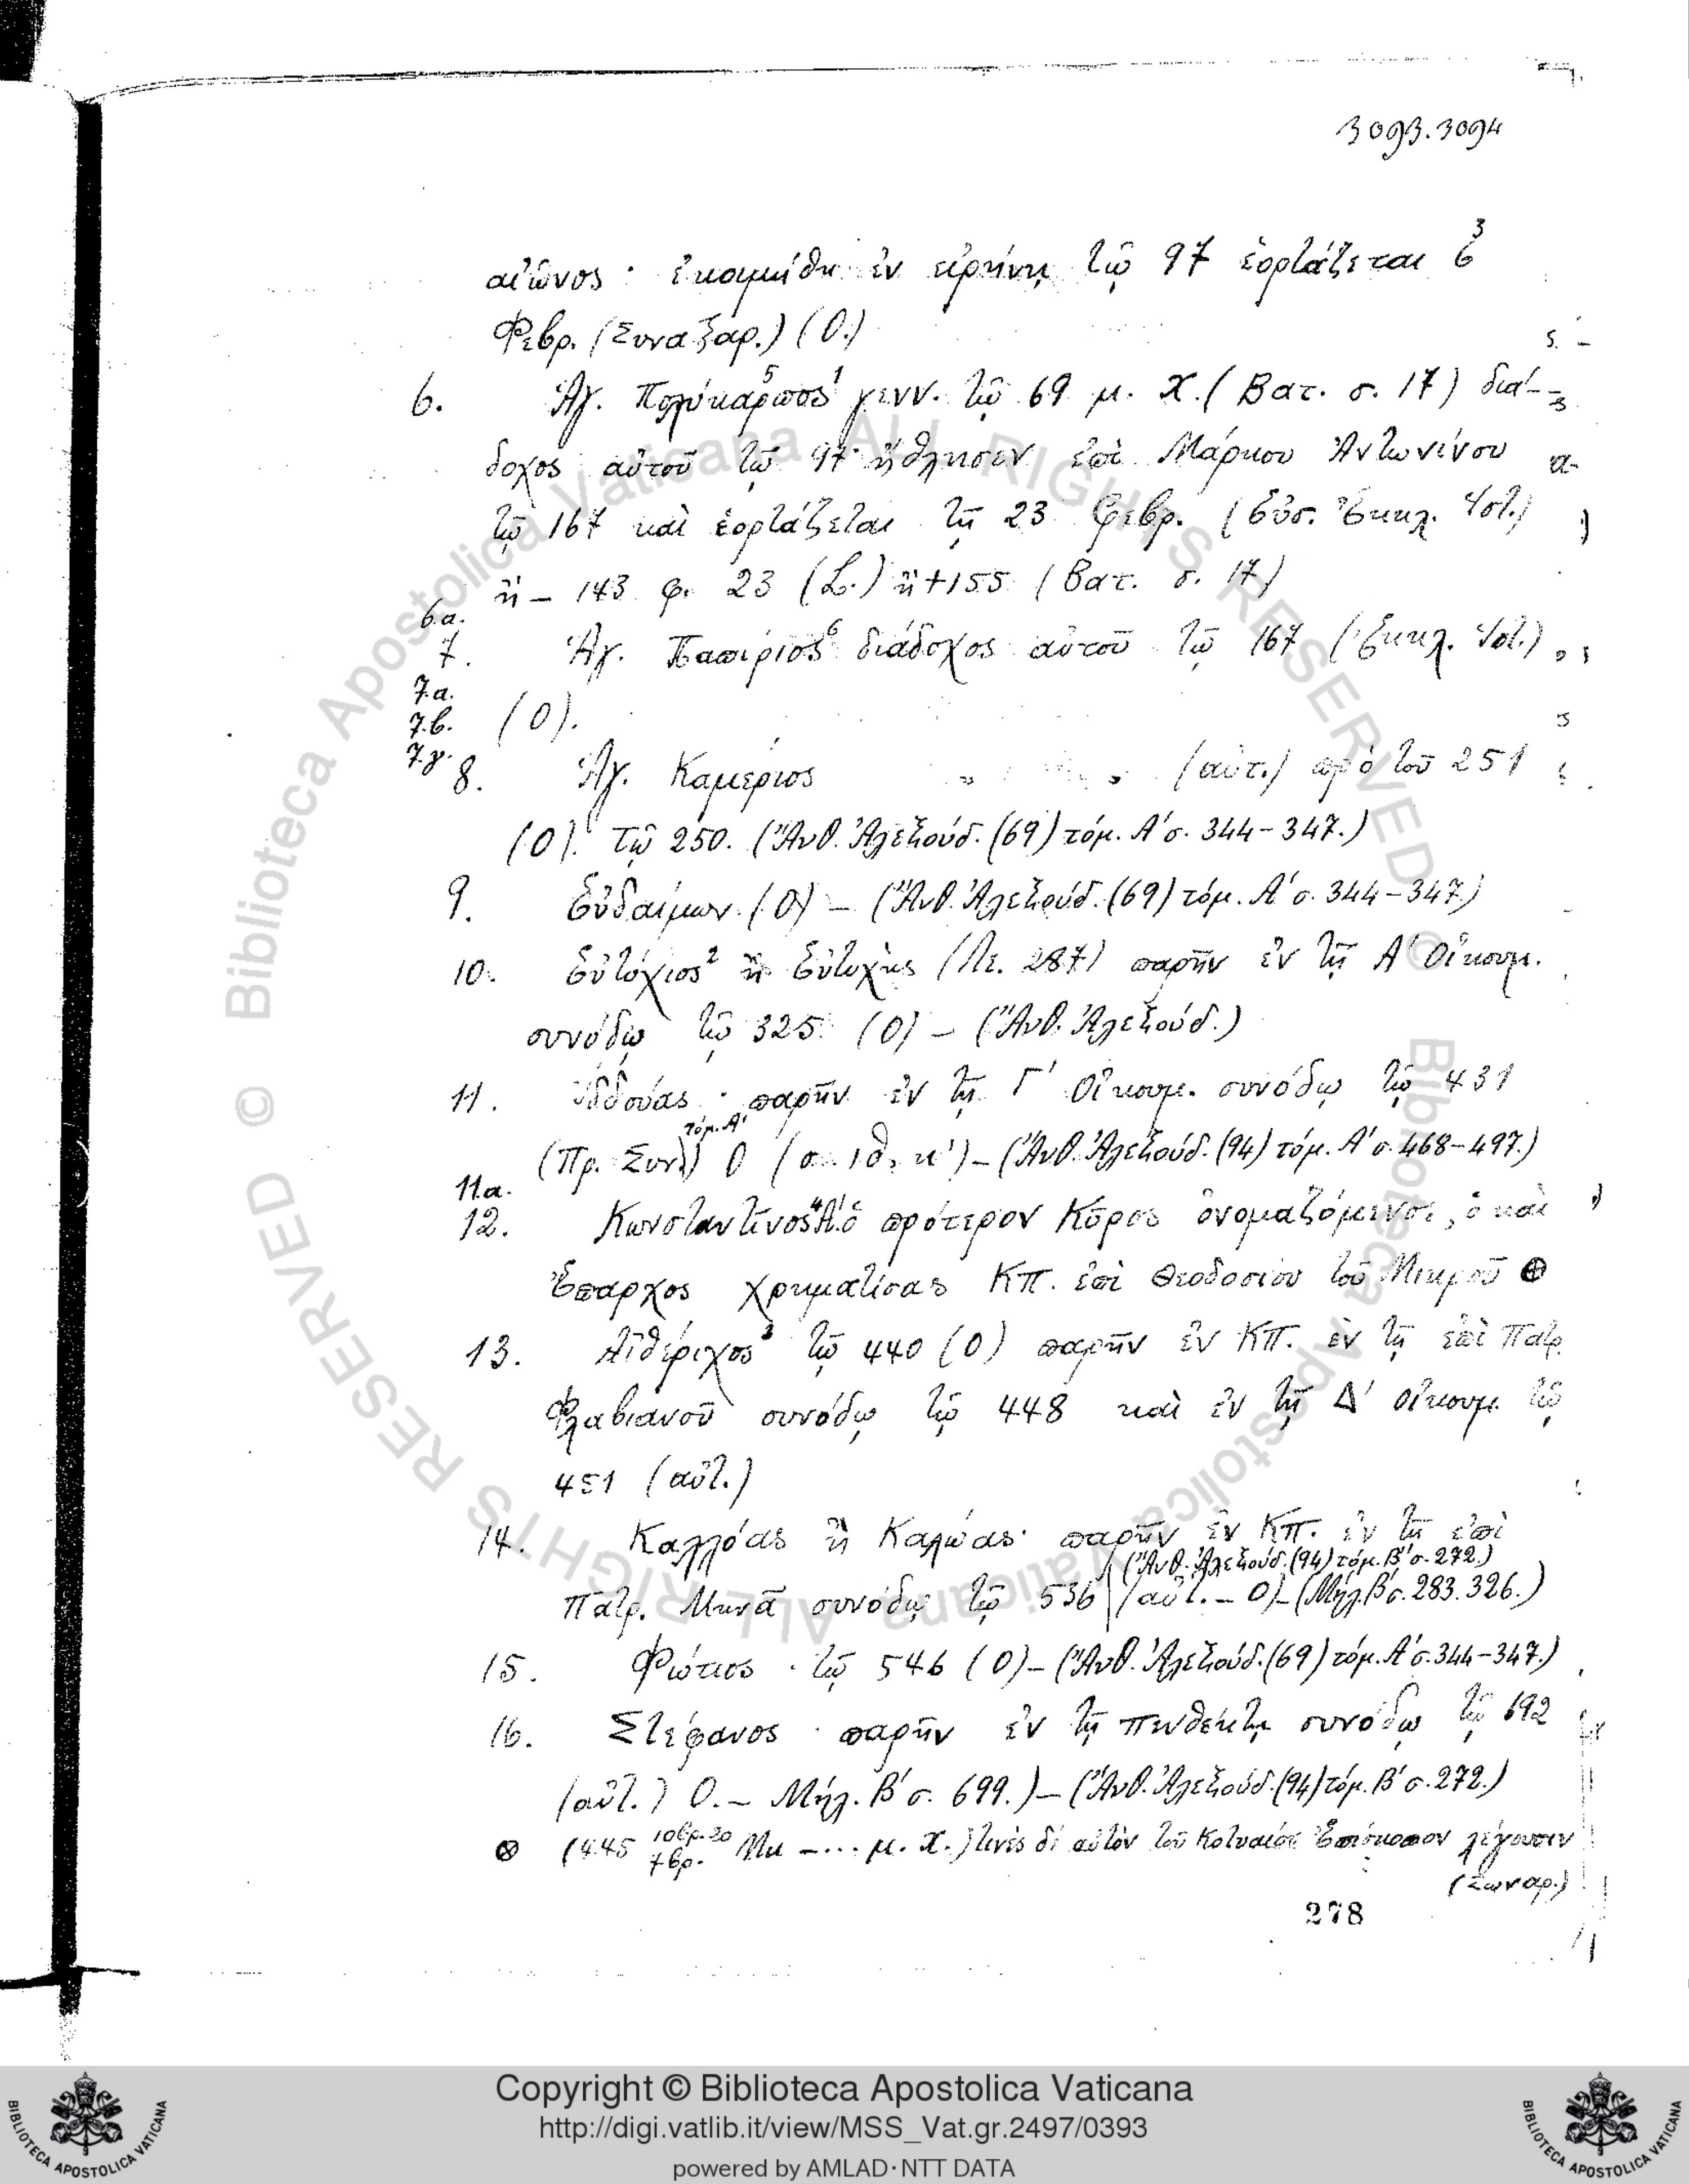 3093.3094
αἰῶνος· ἐκοιμήθη ἐν εἰρήνῃ τῷ 97 ἑορτάζεται 6 3
Φεβρ. (Συναξαρ.) (Ο.)
6. Ἅγ. Πολύκαρπος 5 1 γενν. τῷ 69 μ. Χ. (Βατ. σ. 17) διά-
δοχος αὐτοῦ τῷ 97 ἤθλησεν ἐπὶ Μάρκου Ἀντωνίνου
τῷ 167 καὶ ἑορτάζεται τῇ 23 Φεβρ. (Εὐσ. Ἐκκλ. Ἱστ.)
ἢ – 143 φ. 23 (L.) ἢ +155 (Βατ. σ. 17)
6α.
7. Ἅγ. Παπίριος 6 διάδοχος αὐτοῦ τῷ 167 (Ἐκκλ. Ἱστ.)
7.α.
7.β. (Ο).
7.γ.
8. Ἅγ. Καμέριος (αὐτ.) πρὸ τοῦ 251
(Ο). Τῷ 250. (Ἄνθ. Ἀλεξούδ. (69) τόμ. Α' σ. 344-347.)
9. Εὐδαίμων. (Ο) – (Ἄνθ. Ἀλεξούδ. (69) τόμ. Α' σ. 344-347.)
10. Εὐτύχιος 2 ἢ Εὐτυχὴς (Λε. 287) παρῆν ἐν τῇ Α' Οἰκουμ.
συνόδῳ τῷ 325. (Ο) – (Ἄνθ. Ἀλεξούδ.)
11. Ἰδδούας· παρῆν ἐν τῇ Γ' Οἰκουμ. συνόδῳ τῷ 431
(Πρ. Συν. τόμ. Α') Ο (σ. ιθ, κ') – (Ἄνθ. Ἀλεξούδ. (94) τόμ. Α' σ. 468-497.)
11α.
12. Κωνσταντῖνος 4 Α' ὁ πρότερον Κῦρος ὀνομαζόμενος, ὁ καὶ
Ἔπαρχος χρηματίσας ΚΠ. ἐπὶ Θεοδοσίου τοῦ Μικροῦ ⊗
13. Αἰθέριχος 2 τῷ 440 (Ο) παρῆν ἐν ΚΠ. ἐν τῇ ἐπὶ Πατρ.
Φλαβιανοῦ συνόδῳ τῷ 448 καὶ ἐν τῇ Δ' οἰκουμ. τῷ
451 (αὐτ.)
14. Καλλόας ἢ Καλώας· παρῆν ἐν ΚΠ. ἐν τῇ ἐπὶ
(Ἄνθ. Ἀλεξούδ. (94) τόμ. Β' σ. 272.)
Πατρ. Μηνᾶ συνόδῳ τῷ 536 (αὐτ. – Ο) – (Μήλ. Β' σ. 283. 326.)
15. Φώτιος· τῷ 546 (Ο) – (Ἄνθ. Ἀλεξούδ. (69) τόμ. Α' σ. 344-347.)
16. Στέφανος· παρῆν ἐν τῇ πενθέκτῃ συνόδῳ τῷ 692
(αὐτ.) Ο. – Μήλ. Β' σ. 699.) – (Ἄνθ. Ἀλεξούδ. (94) τόμ. Β' σ. 272.)
⊗ (445 10βρ. 20 7βρ. Μη – ... μ. Χ.) τινὲς δὲ αὐτὸν τοῦ Κοτυαίου Ἐπίσκοπον λέγουσιν
(Ζωναρ.)
278
Copyright © Biblioteca Apostolica Vaticana
http://digi.vatlib.it/view/MSS_Vat.gr.2497/0393
powered by AMLAD·NTT DATA
BIBLIOTECA APOSTOLICA VATICANA
BIBLIOTECA APOSTOLICA VATICANA